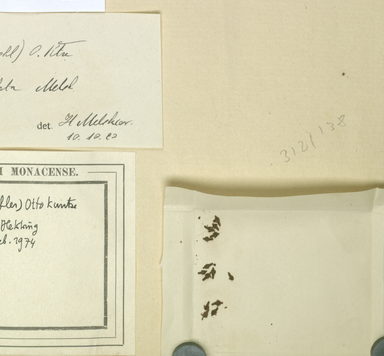 O. Ktze
Melch
det. H. Melchior
10. 10. 80
M MONACENSE.
Otto Kuntze
Hekking
eb. 1974
312/138